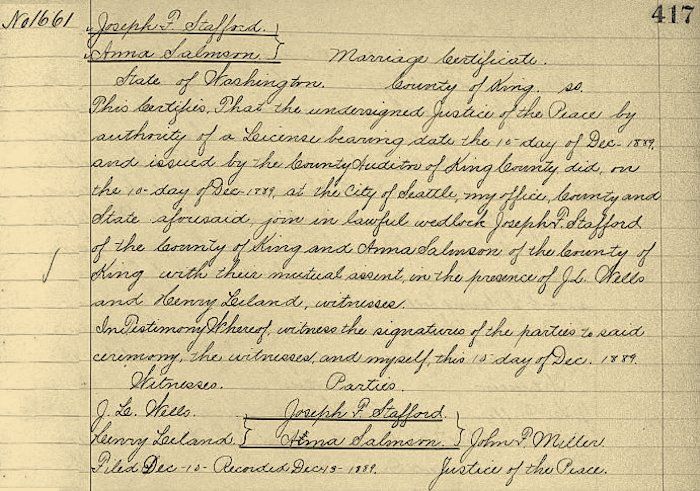 No 1661 Joseph F. Stafford. 417
Anna Salmson. Marriage Certificate.
State of Washington. County of King. ss.
This Certifies, That the undersigned Justice of the Peace by
authority of a License bearing date the 10 day of Dec- 1889.
and issued by the County Auditor of King County did, on
the 10- day of Dec- 1889, at the City of Seattle, my office, County and
State aforesaid, join in lawful wedlock Joseph F. Stafford
of the County of King and Anna Salmson of the County of
King with their mutual assent, in the presence of J. L. Wells
and Henry Leland, witnesses.
In Testimony Whereof, witness the signatures of the parties to said
ceremony, the witnesses, and myself, this 10- day of Dec. 1889.
Witnesses. Parties.
J. L. Wells. Joseph F. Stafford.
Henry Leland. Anna Salmson. John P. Miller
Filed Dec-10- Recorded Dec 13-1889. Justice of the Peace.